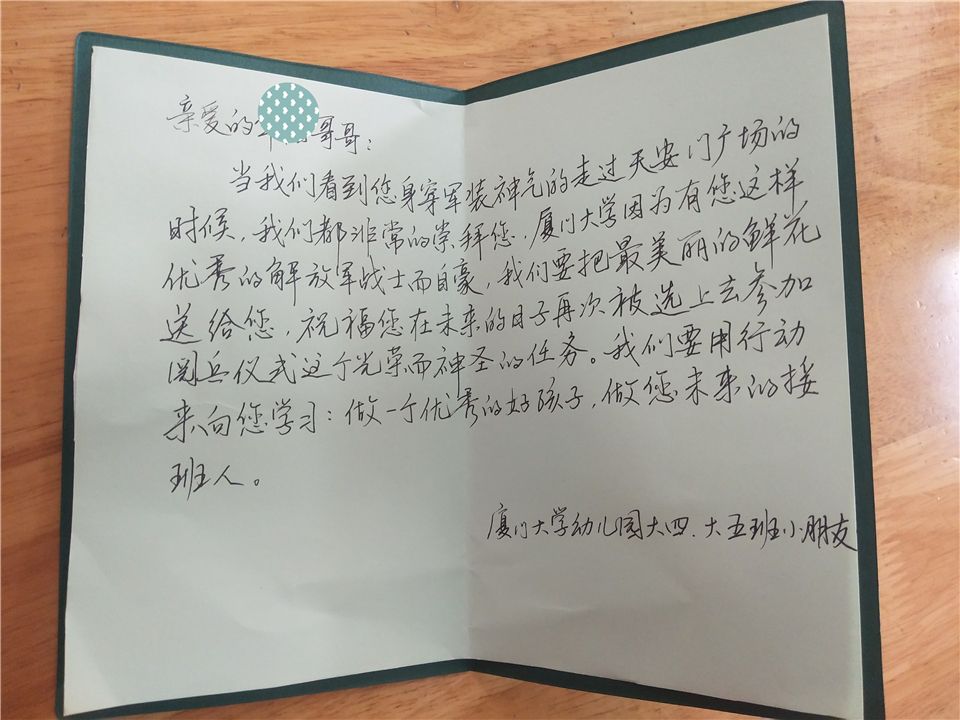 亲爱的哥哥：
当我们看到您身穿军装神气的走过天安门广场的
时候，我们都非常的崇拜您。厦门大学因为有您这样
优秀的解放军战士而自豪，我们要把最美丽的鲜花
送给您，祝福您在未来的日子再次被选上去参加
阅兵仪式这个光荣而神圣的任务。我们要用行动
来向您学习：做一个优秀的好孩子，做您未来的接
班人。
厦门大学幼儿园大四、大五班小朋友